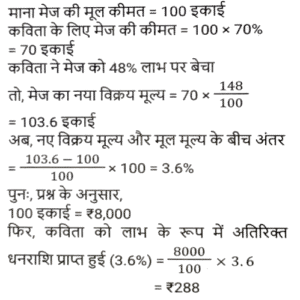 माना मेज की मूल कीमत = 100 इकाई
कविता के लिए मेज की कीमत = 100 × 70%
= 70 इकाई
कविता ने मेज को 48% लाभ पर बेचा
तो, मेज का नया विक्रय मूल्य = 70 × 148/100
= 103.6 इकाई
अब, नए विक्रय मूल्य और मूल मूल्य के बीच अंतर
= (103.6 – 100)/100 × 100 = 3.6%
पुनः, प्रश्न के अनुसार,
100 इकाई = ₹8,000
फिर, कविता को लाभ के रूप में अतिरिक्त
धनराशि प्राप्त हुई (3.6%) = 8000/100 × 3.6
= ₹288